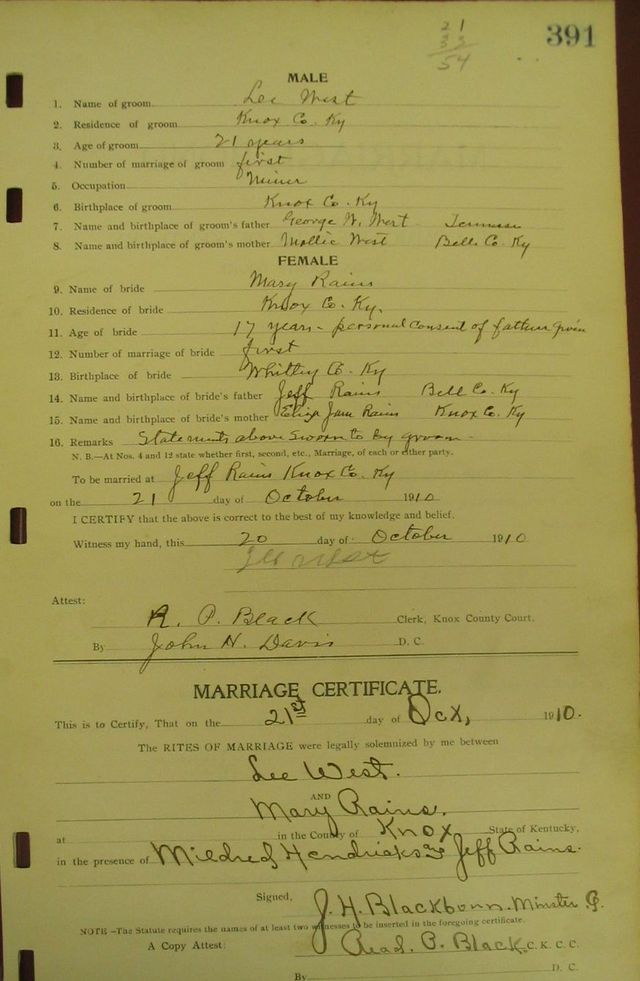 21
33
54
391
MALE
1. Name of groom Lee West
2. Residence of groom Knox Co. Ky
3. Age of groom 21 years
4. Number of marriage of groom first
5. Occupation Miner
6. Birthplace of groom Knox Co. Ky
7. Name and birthplace of groom's father George W. West Tennessee
8. Name and birthplace of groom's mother Mollie West Bell Co. Ky
FEMALE
9. Name of bride Mary Rains
10. Residence of bride Knox Co. Ky.
11. Age of bride 17 years - personal consent of father given
12. Number of marriage of bride first
13. Birthplace of bride Whitley Co. Ky
14. Name and birthplace of bride's father Jeff Rains Bell Co. Ky
15. Name and birthplace of bride's mother Eliza Jane Rains Knox Co. Ky
16. Remarks Statements above sworn to by groom
N. B.—At Nos. 4 and 12 state whether first, second, etc., Marriage, of each or either party.
To be married at Jeff Rains Knox Co. Ky
on the 21 day of October 1910
I CERTIFY that the above is correct to the best of my knowledge and belief.
Witness my hand, this 20 day of October 1910
Lee West
Attest:
R. P. Black Clerk, Knox County Court.
By John H. Davis D. C.
MARRIAGE CERTIFICATE.
This is to Certify, That on the 21st day of Oct, 1910.
The RITES OF MARRIAGE were legally solemnized by me between
Lee West.
AND
Mary Rains.
at in the County of Knox State of Kentucky,
in the presence of Mildred Hendricks and Jeff Rains.
Signed, J. H. Blackbourn. Minister
NOTE—The Statute requires the names of at least two witnesses to be inserted in the foregoing certificate.
A Copy Attest: Read. P. Black C. K. C. C.
By D. C.